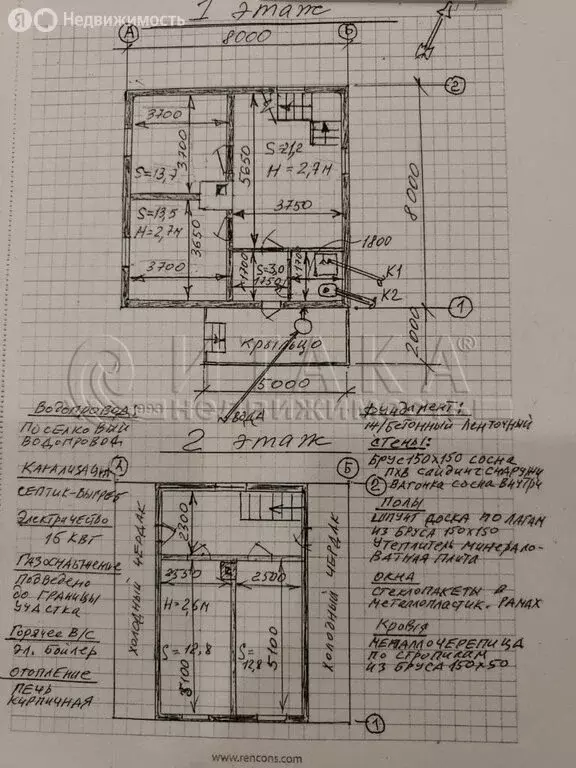 Я Недвижимость
1 этаж
А
Б
8000
2
3700
3700
S=13,7
S=21,2
H=2,7м
5650
3750
8000
S=13,5
H=2,7м
3650
3700
1800
1700
S=3,0
1750
170
К1
К2
1
2000
крыльцо
5000
вода
ИТАКА®
недвижимость
Водопровод:
Поселковый
водопровод
Канализация
септик-выгреб
Электричество
16 кВт
Газоснабжение
подведено
до границы
участка
Горячее В/С
эл. бойлер
Отопление
печь
кирпичная
2 этаж
А
Б
холодный чердак
2300
2550
2500
H=2,6м
S=12,8
5100
S=
12,8
5100
холодный чердак
1
Фундамент:
ж/бетонный ленточный
Стены:
Брус 150х150 сосна
пхв сайдинг снаружи
2
вагонка сосна внутри
Полы
шпунт доска по лагам
из бруса 150х150
утеплитель минерало-
ватная плита
Окна
стеклопакеты в
металлопластик. рамах
Кровля
металлочерепица
по стропилам
из бруса 150х50
www.rencons.com